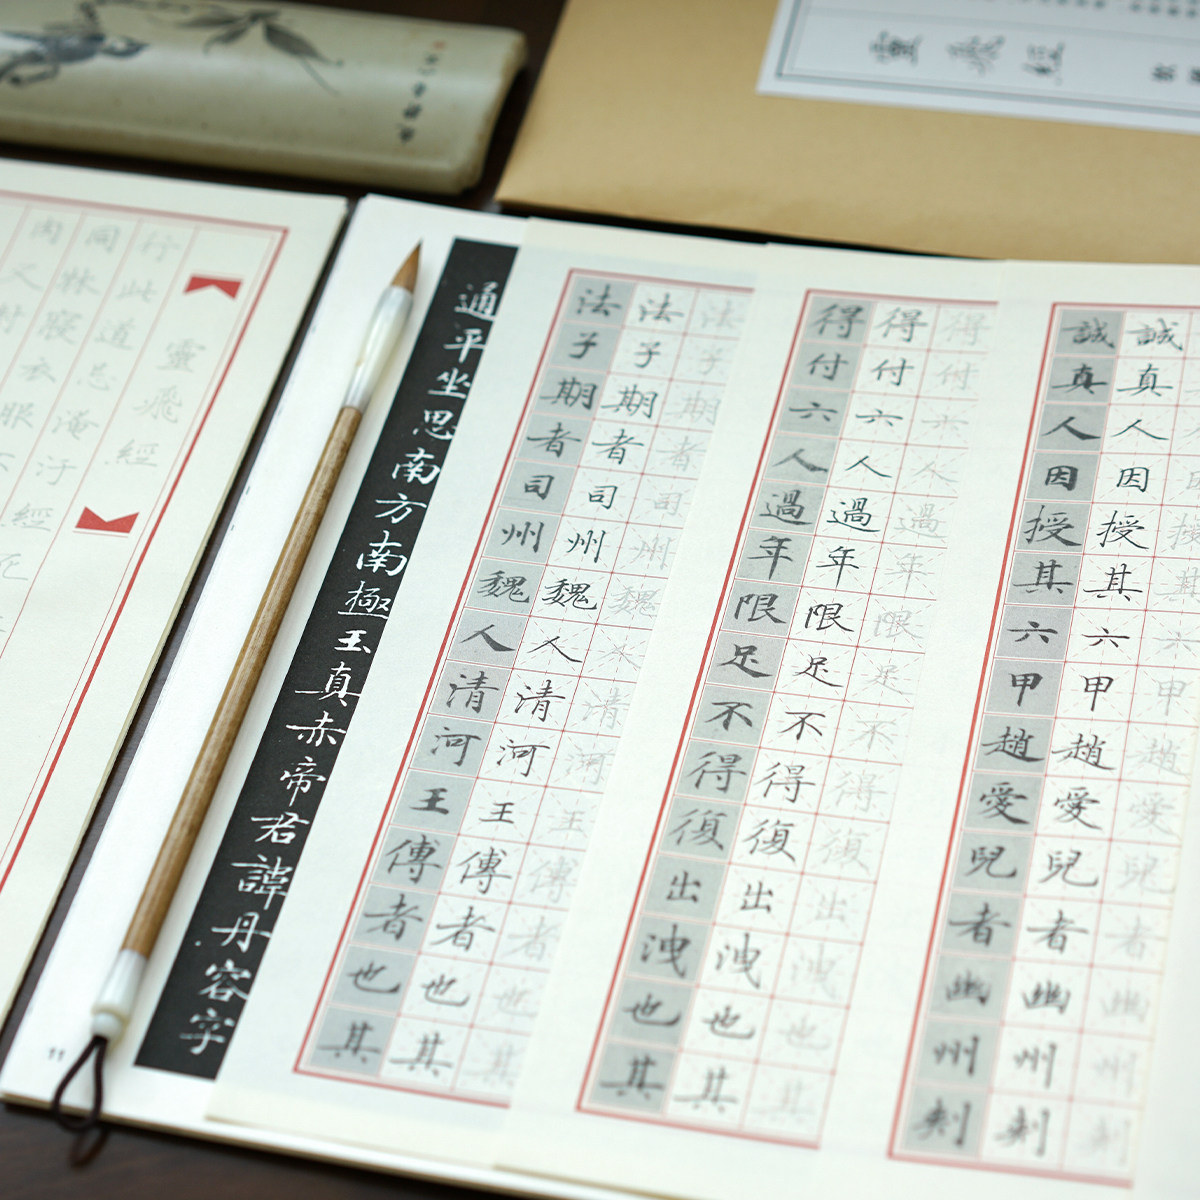 靈飛經
誠真人因授其六甲趙愛兒者幽州刾
誠真人因授其六甲趙愛兒者幽州刾
因授其六甲趙愛兒者幽州刾
得付六人過年限足不得復出洩也其
得付六人過年限足不得復出洩也其
得付六人過年限足不得復出洩也其
法子期者司州魏人清河王傳者也其
法子期者司州魏人清河王傳者也其
法子期者司州魏人清河王傳者也其
通平坐思南方南極玉真赤帝君諱丹容字
靈飛經
行此道忌淹汙經死
同牀寢衣服
肉又
11